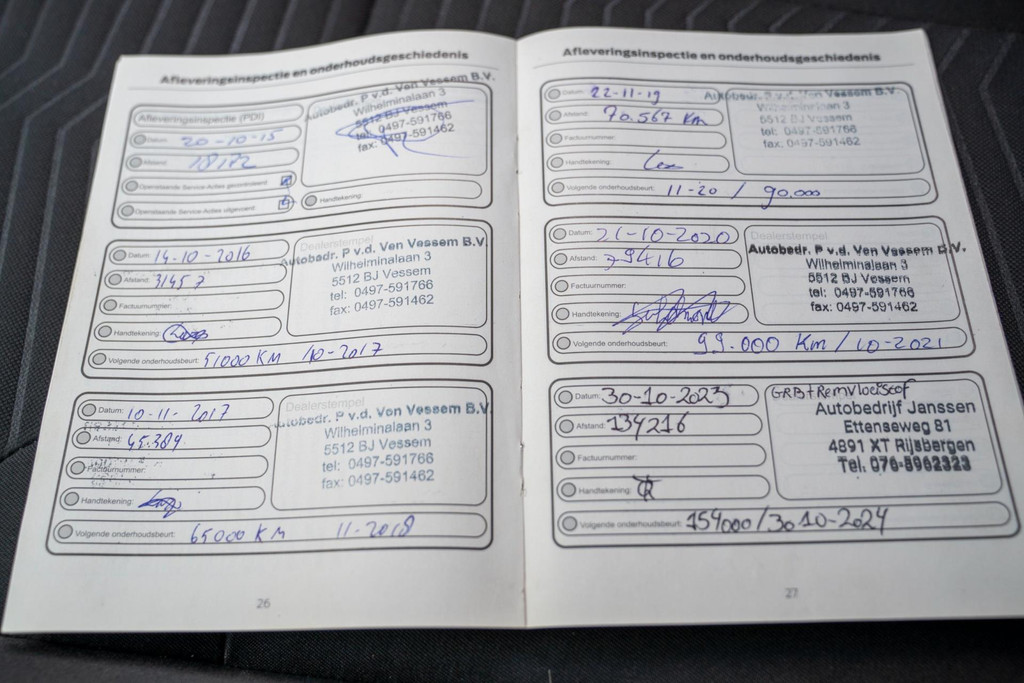 Afleveringsinspectie en onderhoudsgeschiedenis
Afleveringsinspectie (PDI)
Datum: 20-10-15
Afstand:
Openstaande Service-Acties gecontroleerd:
Openstaande Service-Acties uitgevoerd:
Autobedr. P v.d. Ven Vessem B.V.
Wilhelminalaan 3
5512 BJ Vessem
tel: 0497-591766
fax: 0497-591462
Handtekening:
Datum: 14-10-2016
Afstand: 31457
Factuurnummer:
Handtekening:
Dealerstempel
Autobedr. P v.d. Ven Vessem B.V.
Wilhelminalaan 3
5512 BJ Vessem
tel: 0497-591766
fax: 0497-591462
Volgende onderhoudsbeurt: 51000 KM 10-2017
Datum: 10-11-2017
Afstand: 45.384
Factuurnummer:
Handtekening:
Dealerstempel
Autobedr. P v.d. Ven Vessem B.V.
Wilhelminalaan 3
5512 BJ Vessem
tel: 0497-591766
fax: 0497-591462
Volgende onderhoudsbeurt: 65000 KM 11-2018
26
Afleveringsinspectie en onderhoudsgeschiedenis
Datum: 22-11-19
Afstand: 70.567 Km
Factuurnummer:
Handtekening:
Autobedr. P v.d. Ven Vessem B.V.
Wilhelminalaan 3
5512 BJ Vessem
tel: 0497-591766
fax: 0497-591462
Volgende onderhoudsbeurt: 11-20 / 90.000
Datum: 21-10-2020
Afstand: 79416
Factuurnummer:
Handtekening:
Dealerstempel
Autobedr. P v.d. Ven Vessem B.V.
Wilhelminalaan 3
5512 BJ Vessem
tel: 0497-591766
fax: 0497-591462
Volgende onderhoudsbeurt: 99.000 Km / 10-2021
Datum: 30-10-2023
Afstand: 134216
Factuurnummer:
Handtekening:
GRB+Remvloeistof
Autobedrijf Janssen
Ettenseweg 81
4891 XT Rijsbergen
Tel. 076-5962323
Volgende onderhoudsbeurt: 154000/30 10-2024
27